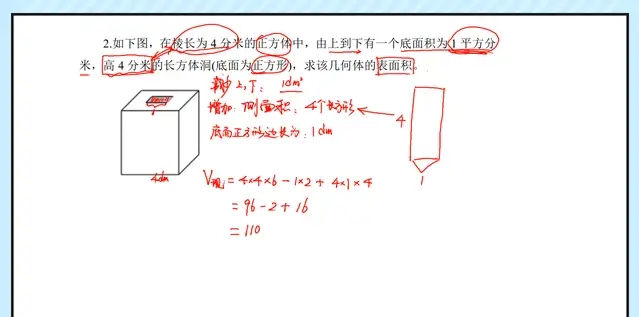 2.如下图，在棱长为 4 分米的正方体中，由上到下有一个底面积为 1 平方分
米，高 4 分米的长方体洞(底面为正方形)，求该几何体的表面积。
减少 上、下： 1dm²
增加：侧面积： 4个长方形
底面正方形边长为：1dm
4
1
1
4dm
V现 = 4×4×6 - 1×2 + 4×1×4
= 96 - 2 + 16
= 110